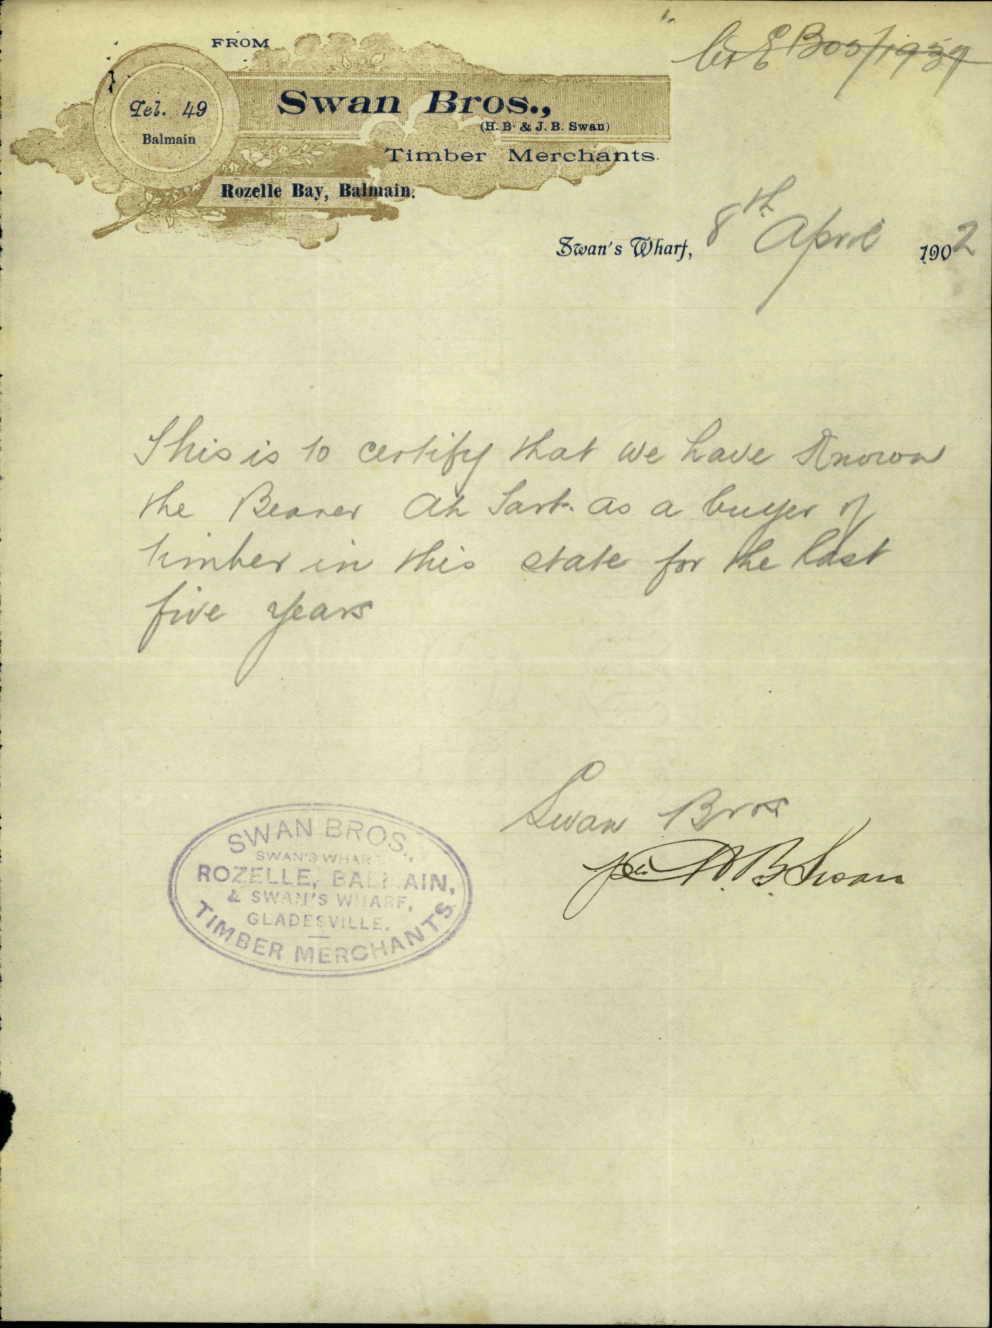 FROM
Tel. 49
Balmain
Swan Bros.,
(H. B. & J. B. Swan)
Timber Merchants.
Rozelle Bay, Balmain.
Swan's Wharf, 8th April 1902
This is to certify that we have known
the Bearer Ah as a buyer of
timber in this state for the last
five years
Swan Bros
H. B. Swan
SWAN BROS.,
SWAN'S WHARF
ROZELLE, BALMAIN,
& SWAN'S WHARF,
GLADESVILLE.
TIMBER MERCHANTS.